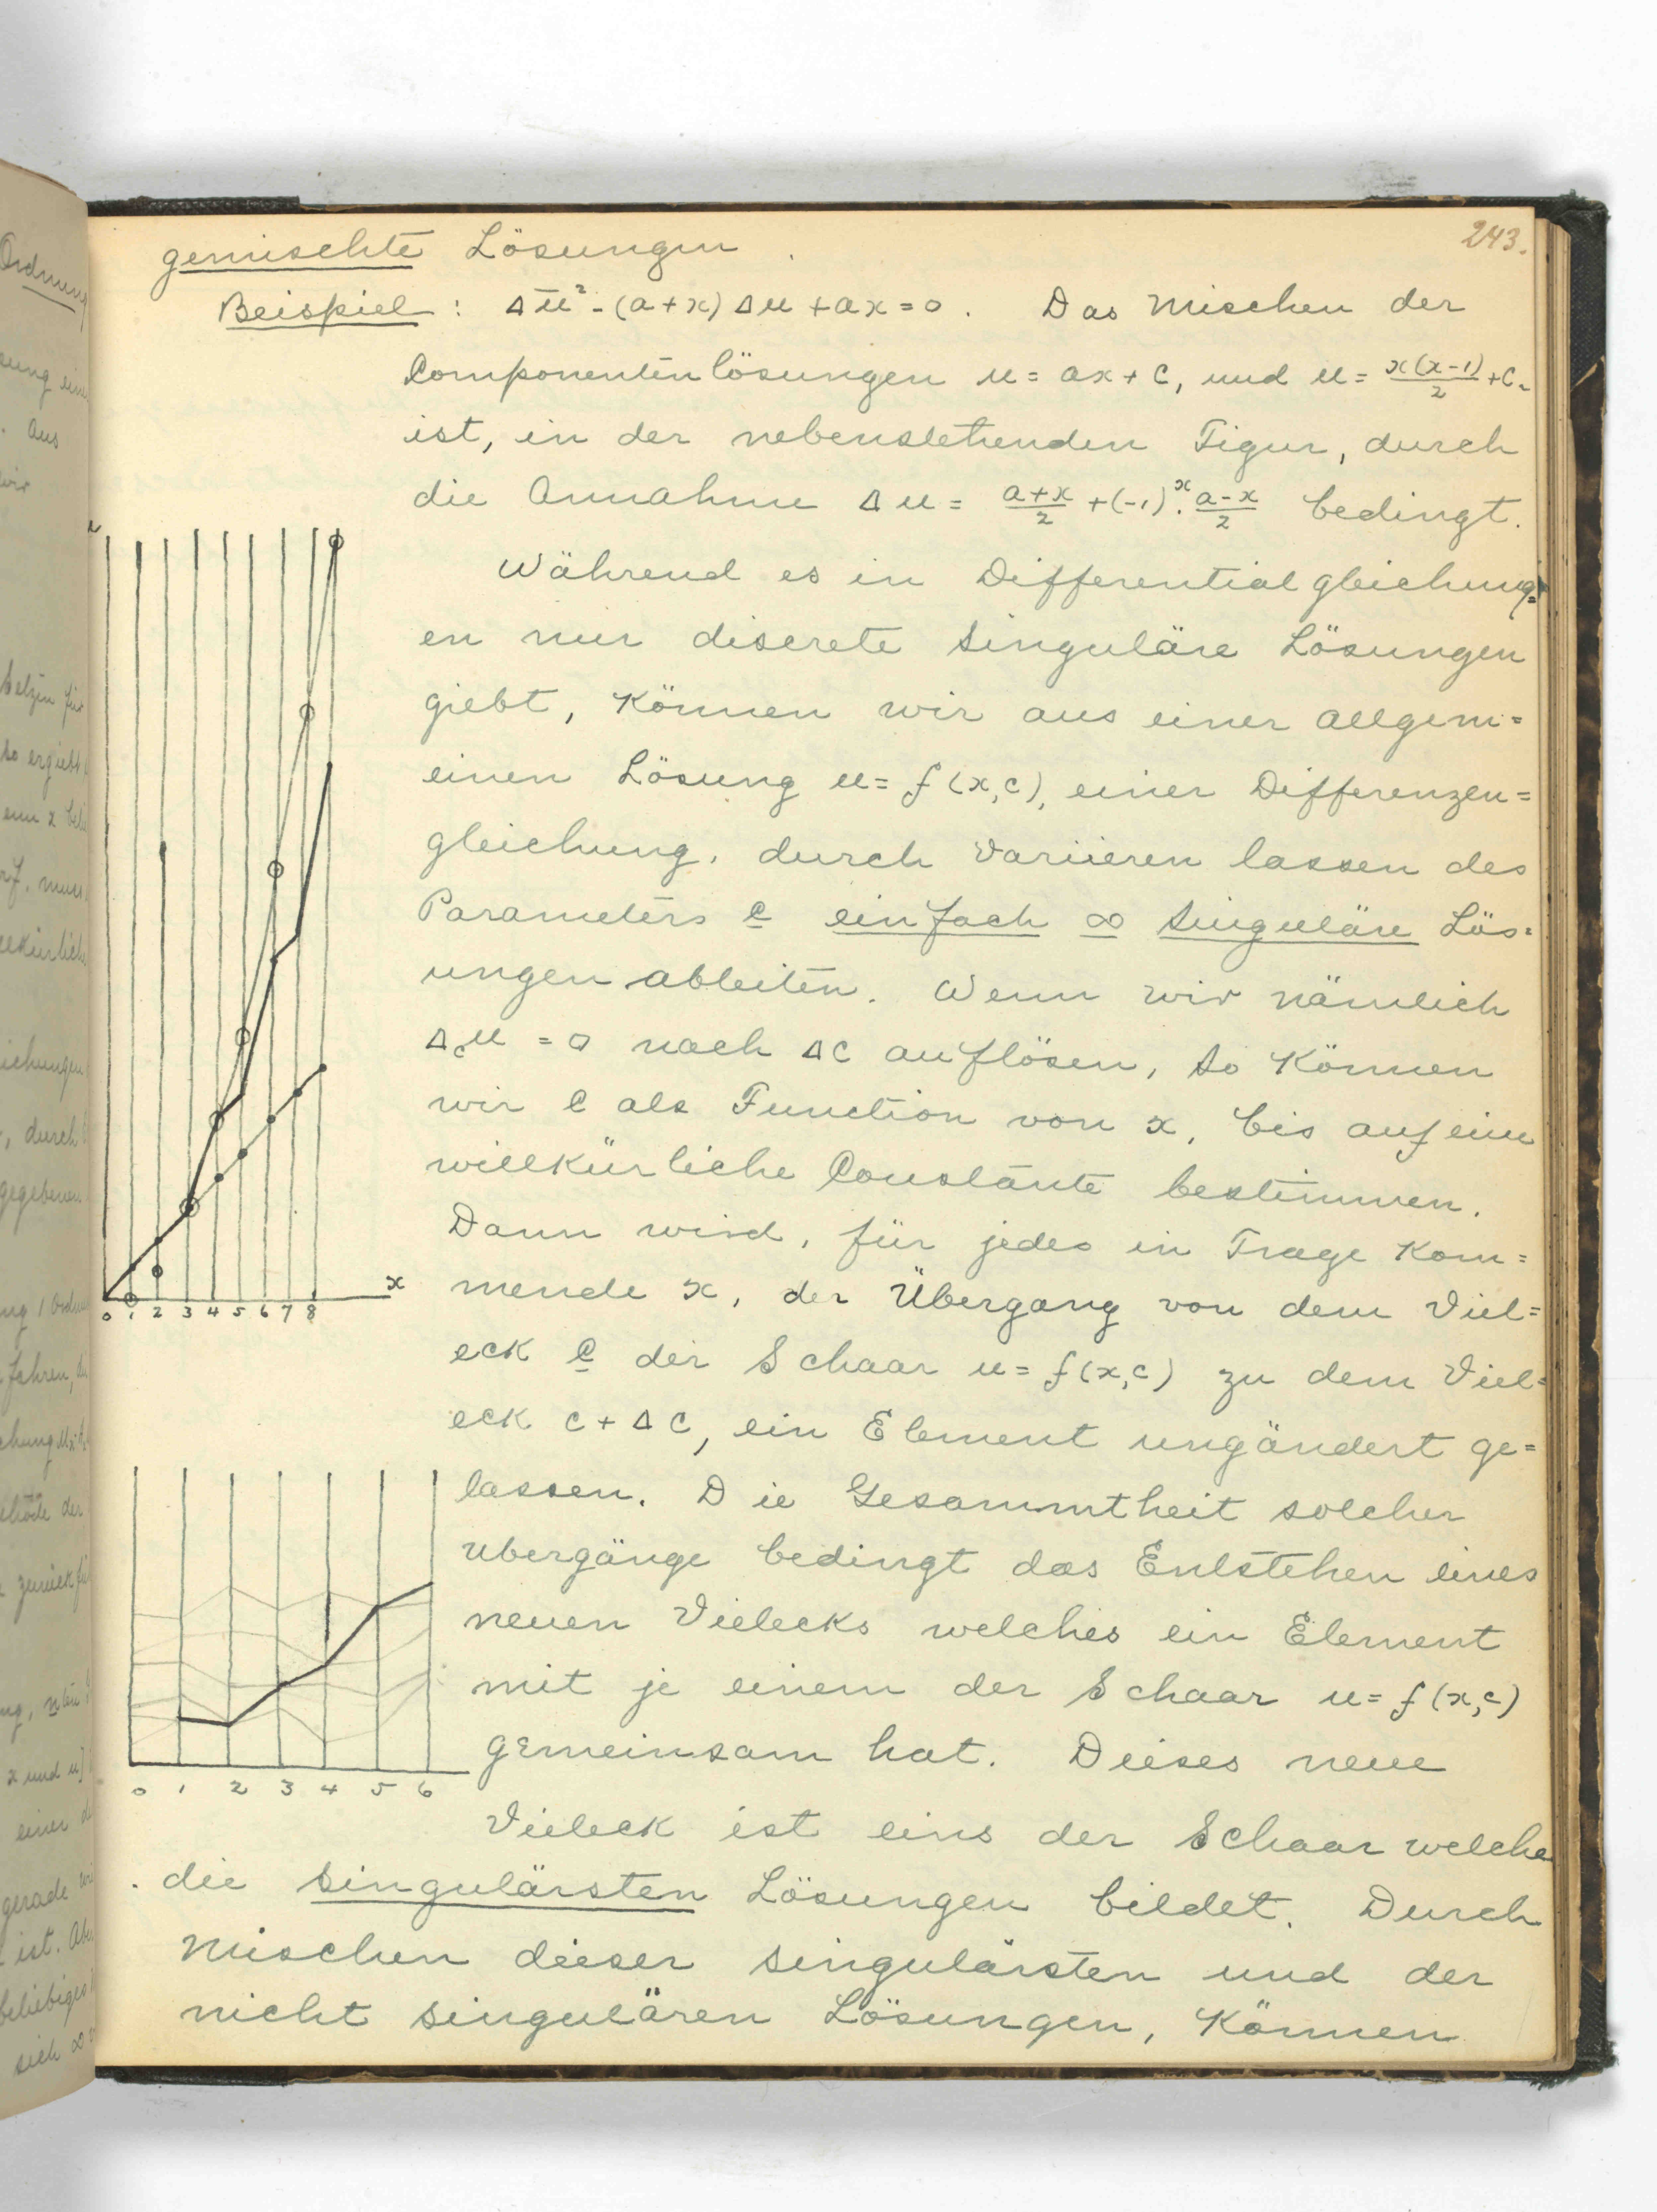 243.
gemischte Lösungen.
Beispiel: Δu² - (a+x) Δu + ax = 0. Das Mischen der
Componentenlösungen u = ax + c, und u = x(x-1)/2 + c.
ist, in der nebenstehenden Figur, durch
die Annahme Δu = (a+x)/2 + (-1)^x · (a-x)/2 bedingt.
Während es in Differentialgleichung=
en nur discrete singuläre Lösungen
giebt, können wir aus einer allgem=
einen Lösung u = f(x,c), einer Differenzen=
gleichung, durch Variieren lassen des
Parameters c einfach ∞ singuläre Lös=
ungen ableiten. Wenn wir nämlich
Δ_c u = 0 nach Δc auflösen, so können
wir c als Function von x, bis auf eine
willkürliche Constante bestimmen.
Dann wird, für jedes in Frage kom=
mende x, der Übergang von dem Viel=
eck c der Schaar u = f(x,c) zu dem Viel=
eck c + Δc, ein Element ungändert ge=
lassen. Die Gesammtheit solcher
Übergänge bedingt das Entstehen eines
neuen Vielecks welches ein Element
mit je einem der Schaar u = f(x,c)
gemeinsam hat. Dieses neue
Vieleck ist eins der Schaar welche
die singulärsten Lösungen bildet. Durch
Mischen dieser singulärsten und der
nicht singulären Lösungen, können
x
0 1 2 3 4 5 6 7 8
0 1 2 3 4 5 6